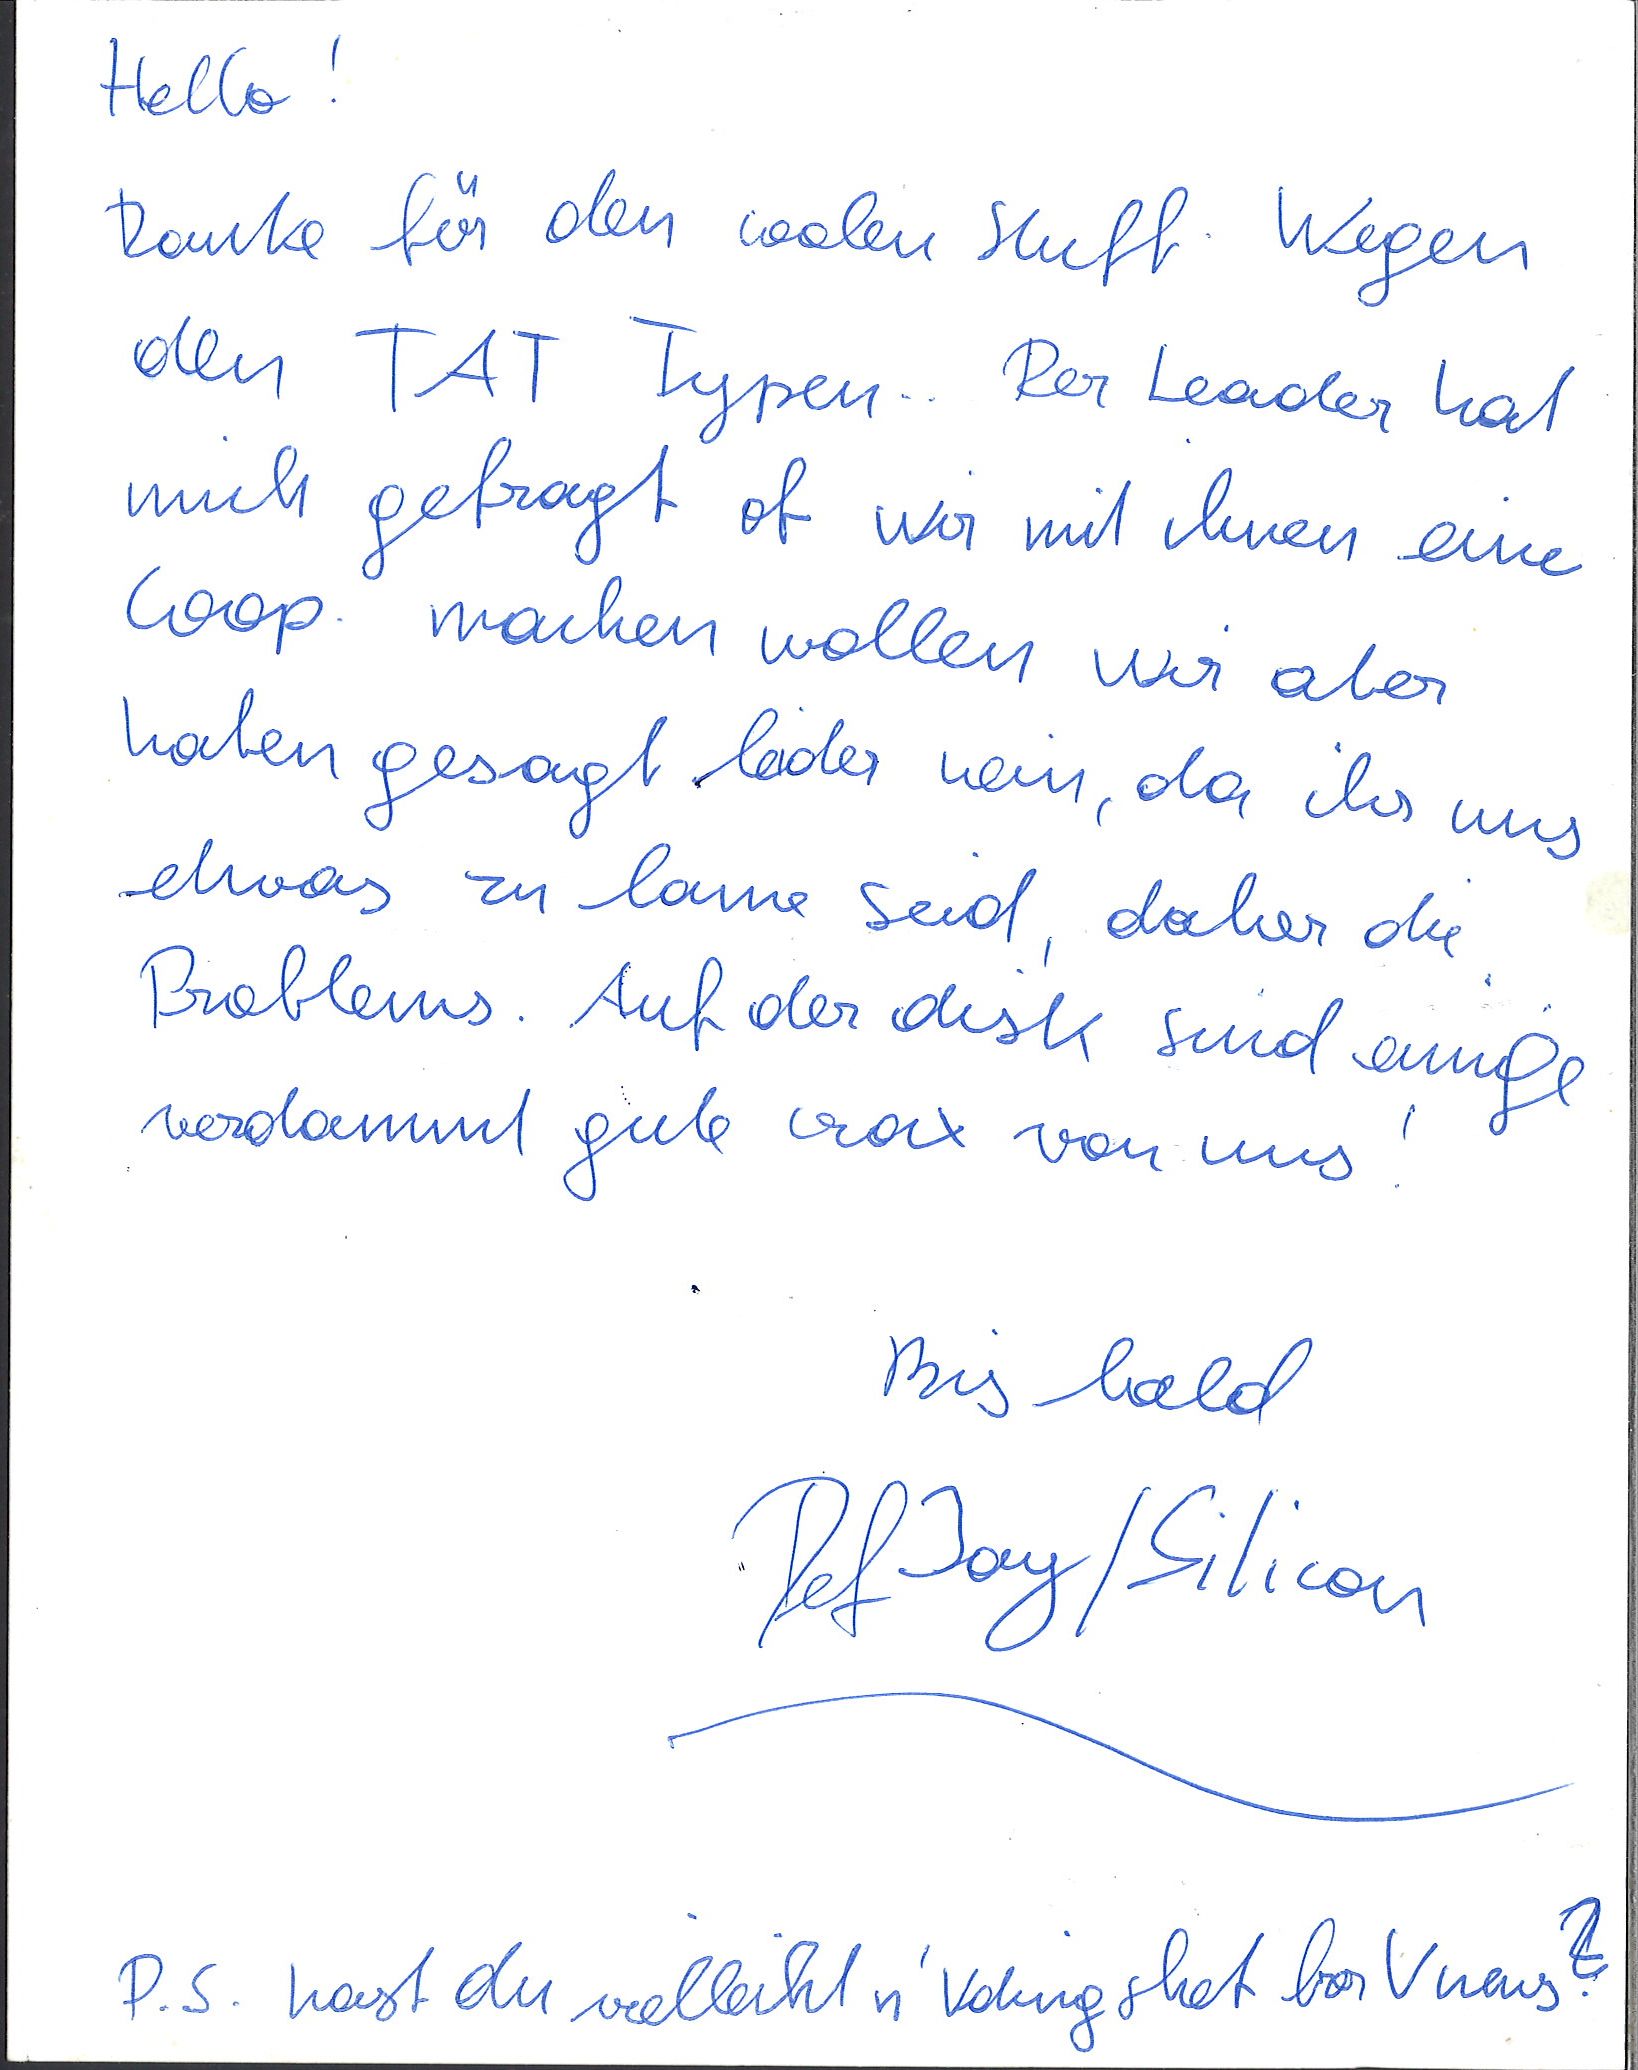 Hello!
Danke für den coolen Stuff. Wegen
den TAT Typen.. Der Leader hat
mich gefragt ob wir mit ihnen eine
Coop. machen wollen wir aber
haben gesagt leider nein, da ihr uns
etwas zu lame seid, daher die
Problems. Auf der disk sind einige
verdammt gute crax von uns!
Bis bald
Def Jay/Silicon
P.S. hast du vielleicht n' Votingshet for Vnews?